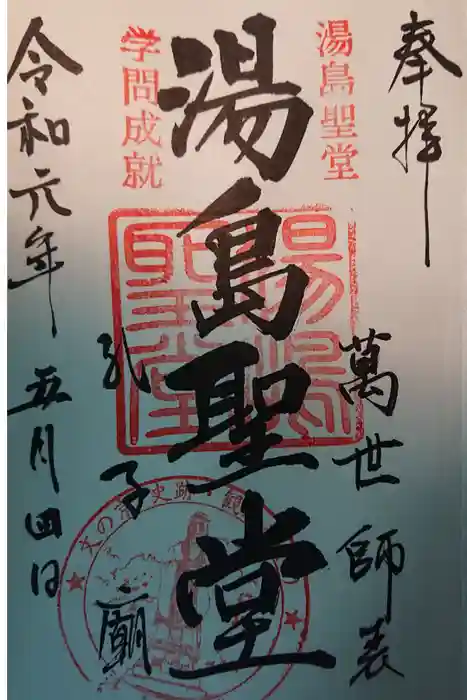 奉拝
湯島聖堂
萬世師表
湯島聖堂
湯島聖堂
学問成就
孔子廟
令和元年五月四日